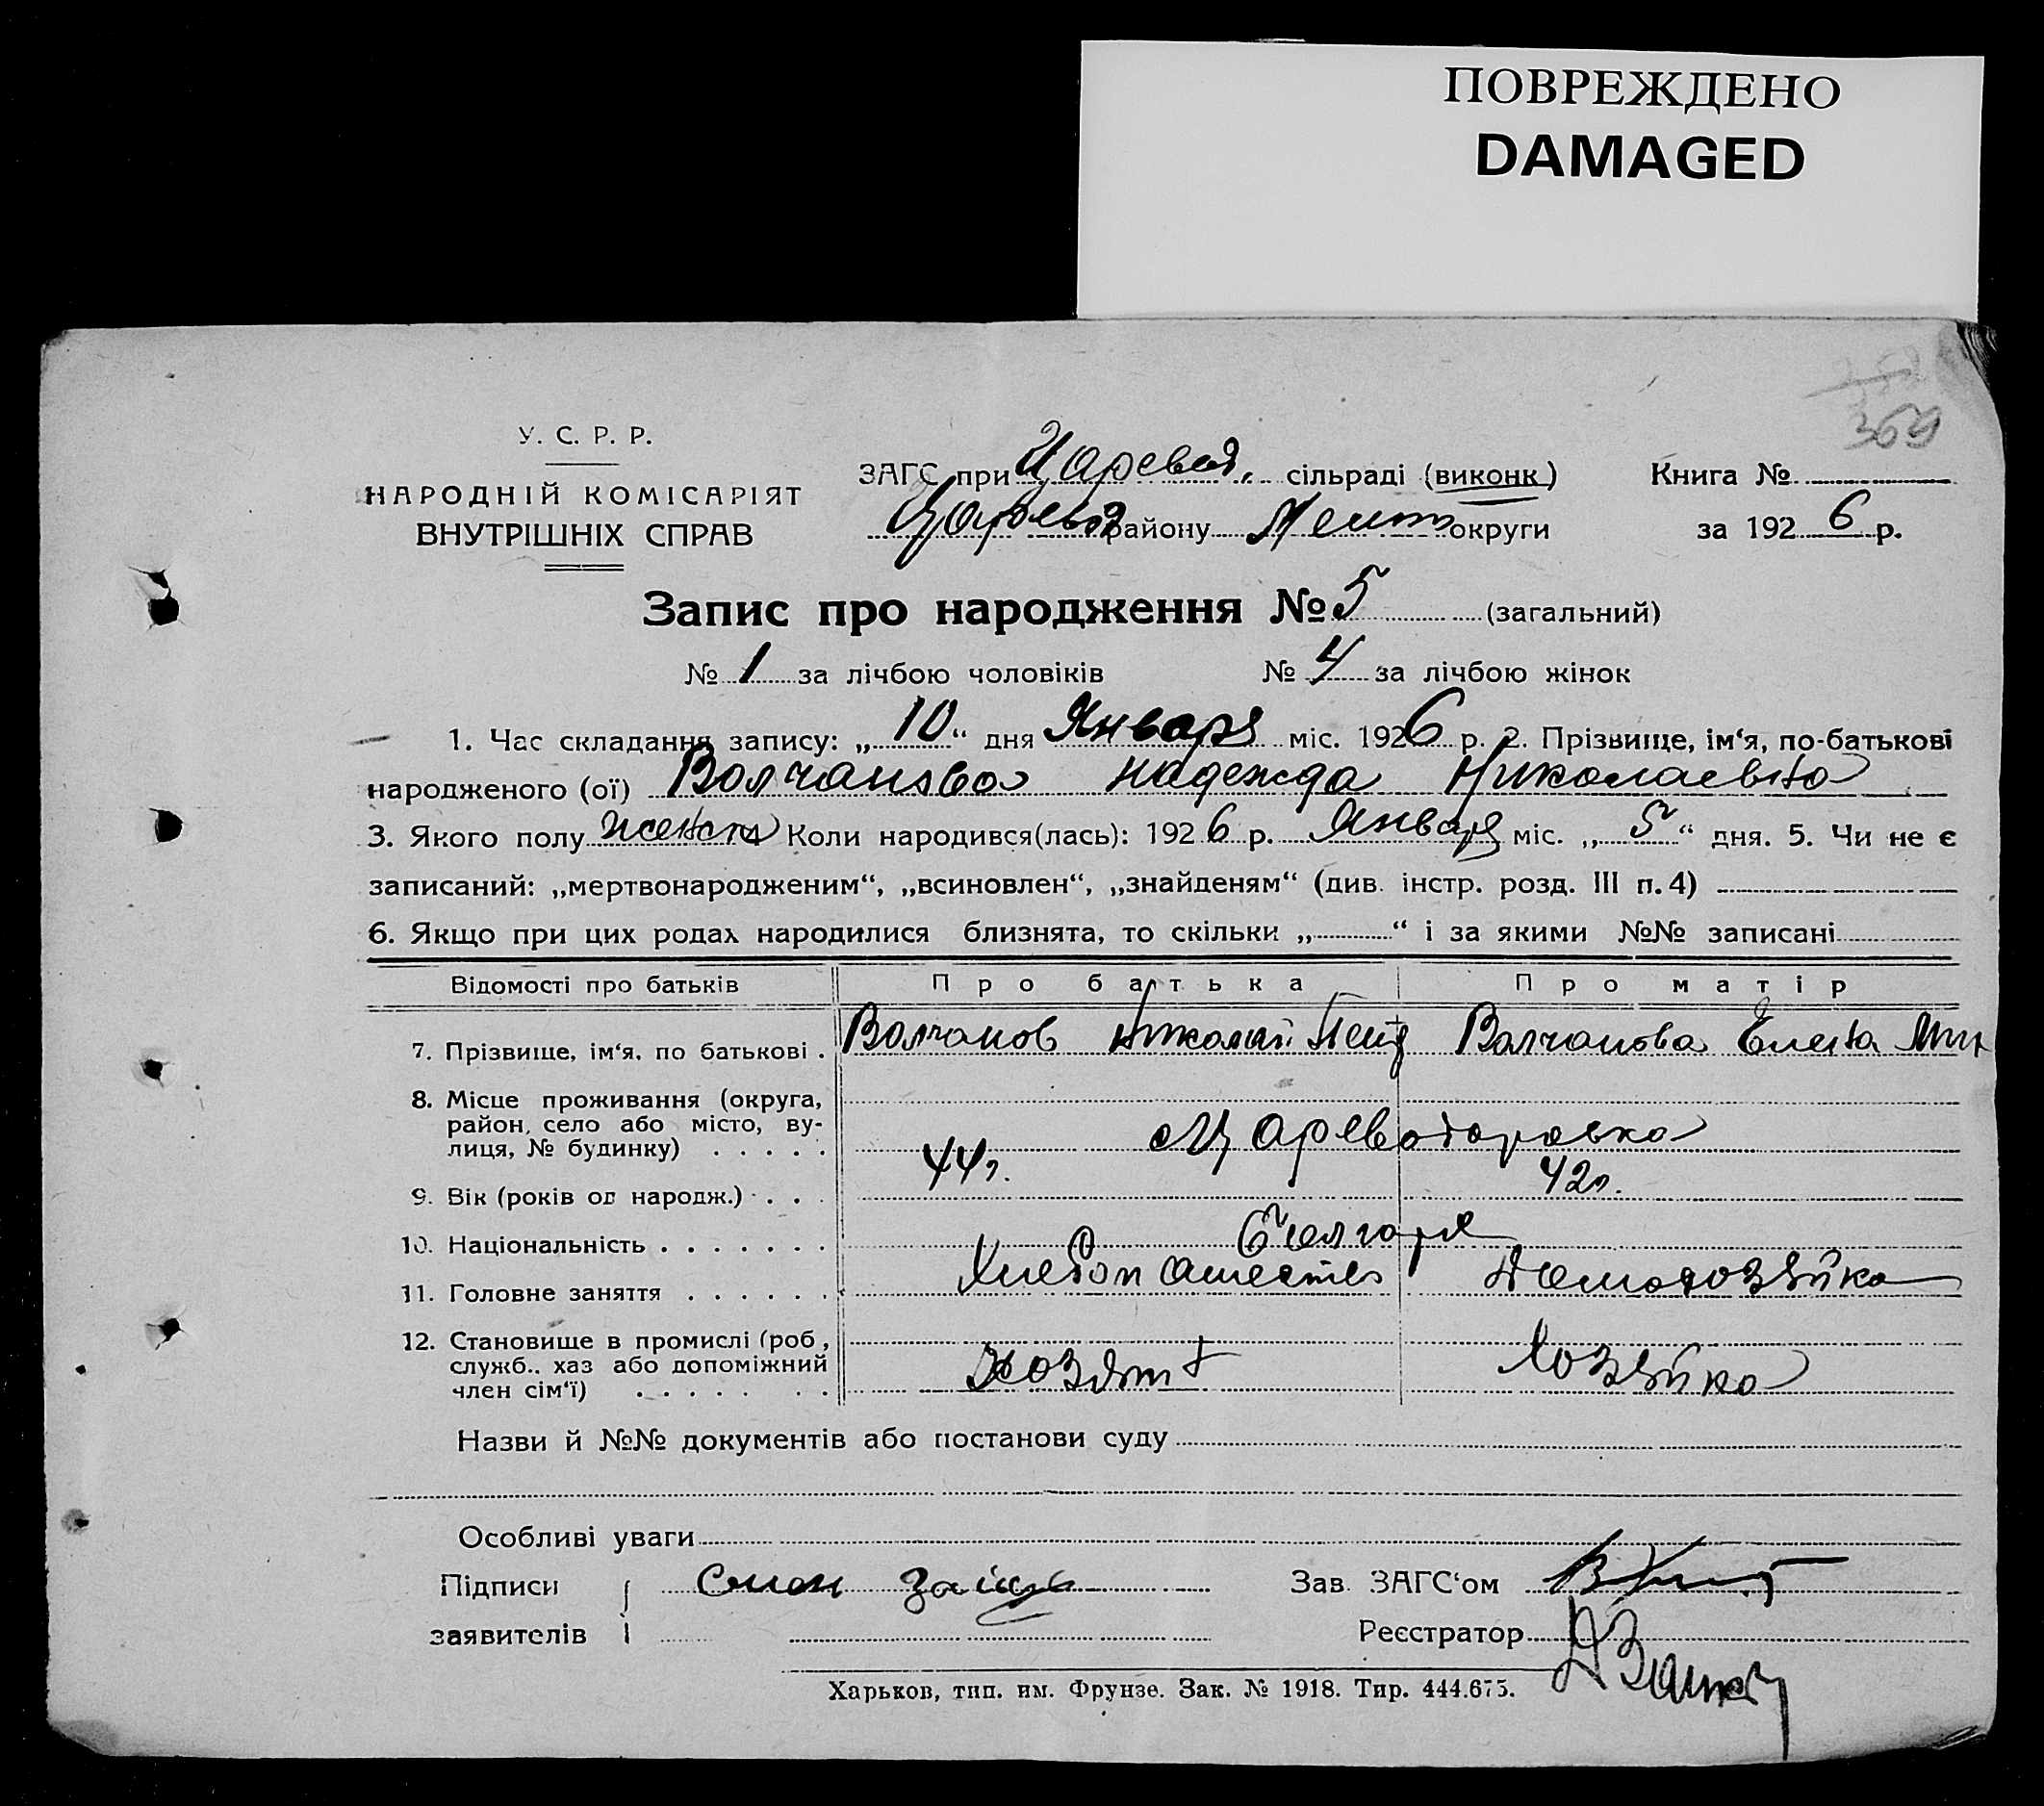 ПОВРЕЖДЕНО
DAMAGED
369
У. С. Р. Р.
НАРОДНІЙ КОМІСАРІЯТ
ВНУТРІШНІХ СПРАВ
ЗАГС при Царевод. сільраді (виконк)
району округи
Книга №
за 1926 р.
Запис про народження № 5 (загальний)
№ 1 за лічбою чоловіків № 4 за лічбою жінок
1. Час складання запису: „10“ дня Января міс. 1926 р. 2. Прізвище, ім‘я, по-батькові
народженого (ої) Волчанова Надежда Николаевна
3. Якого полу женск Коли народився(лась): 1926 р. Января міс. „5“ дня. 5. Чи не є
записаний: „мертвонародженим“, „всиновлен“, „знайденям“ (див. інстр. розд. III п. 4)
6. Якщо при цих родах народилися близнята, то скільки „ “ і за якими №№ записані
Відомості про батьків Про батька Про матір
7. Прізвище, ім‘я, по батькові . Волчанов Николай Волчанова Елена Мих
8. Місце проживання (округа,
район, село або місто, ву-
лиця, № будинку) . . . . . Цареводаровка
9. Вік (років од народж.) . . . 44л. 42л.
10. Національність . . . . . . . Болгаре
11. Головне заняття . . . . . . Хлебопашество Домохозяйка
12. Становище в промислі (роб.,
служб., хаз або допоміжний
член сім‘ї) . . . . . . . Хозяин Хозяйка
Назви й №№ документів або постанови суду
Особливі уваги
Підписи
заявителів
Зав. ЗАГС‘ом
Реєстратор
Харьков, тип. им. Фрунзе. Зак. № 1918. Тир. 444.675.